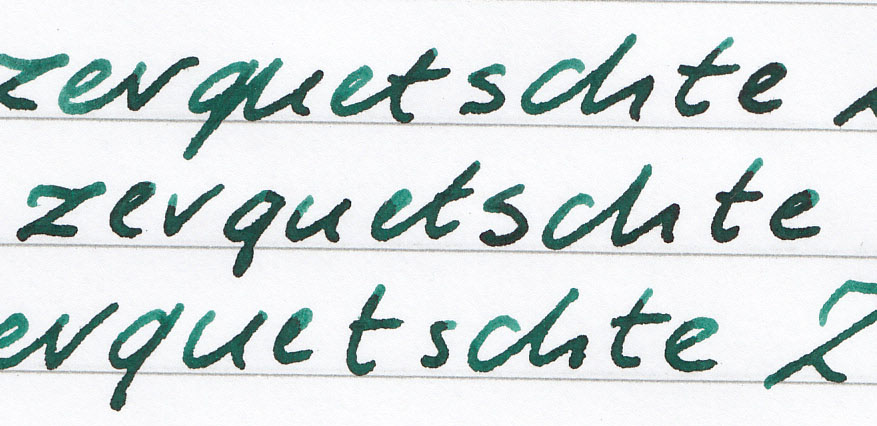 zerquetschte
zerquetschte
erquetschte Z